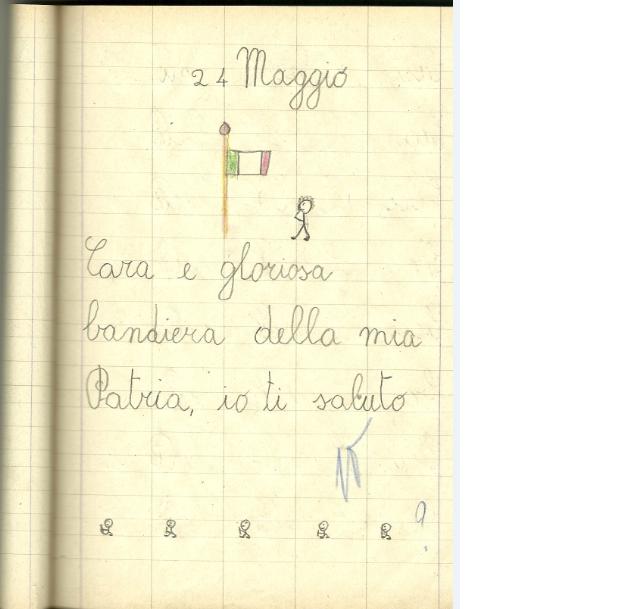 24 Maggio
Cara e gloriosa
bandiera della mia
Patria, io ti saluto
?